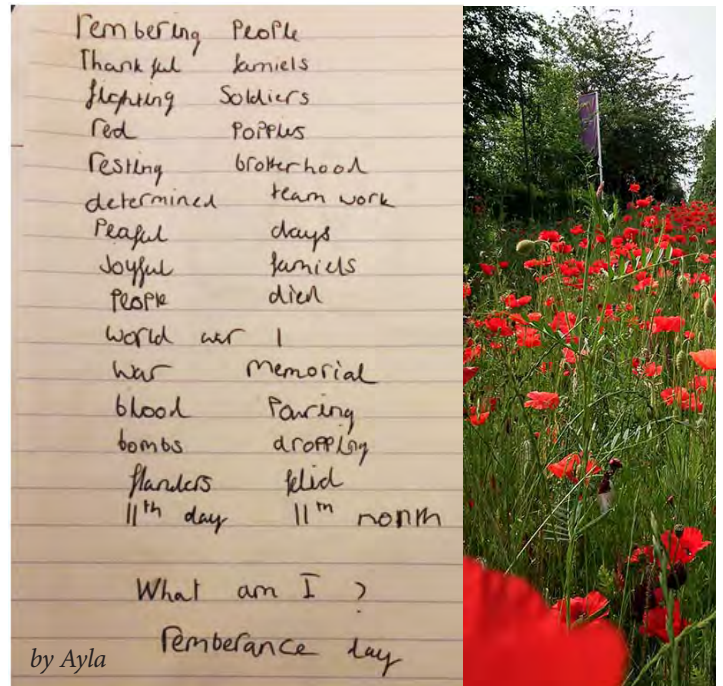 rembering People
Thankful famiels
fighting Soldiers
red Popples
resting brotherhood
determined team work
Peaful days
Joyful famiels
People died
World war 1
War Memorial
blood Pouring
bombs dropping
flanders felid
11th day 11th month
What am I ?
remberance day
by Ayla